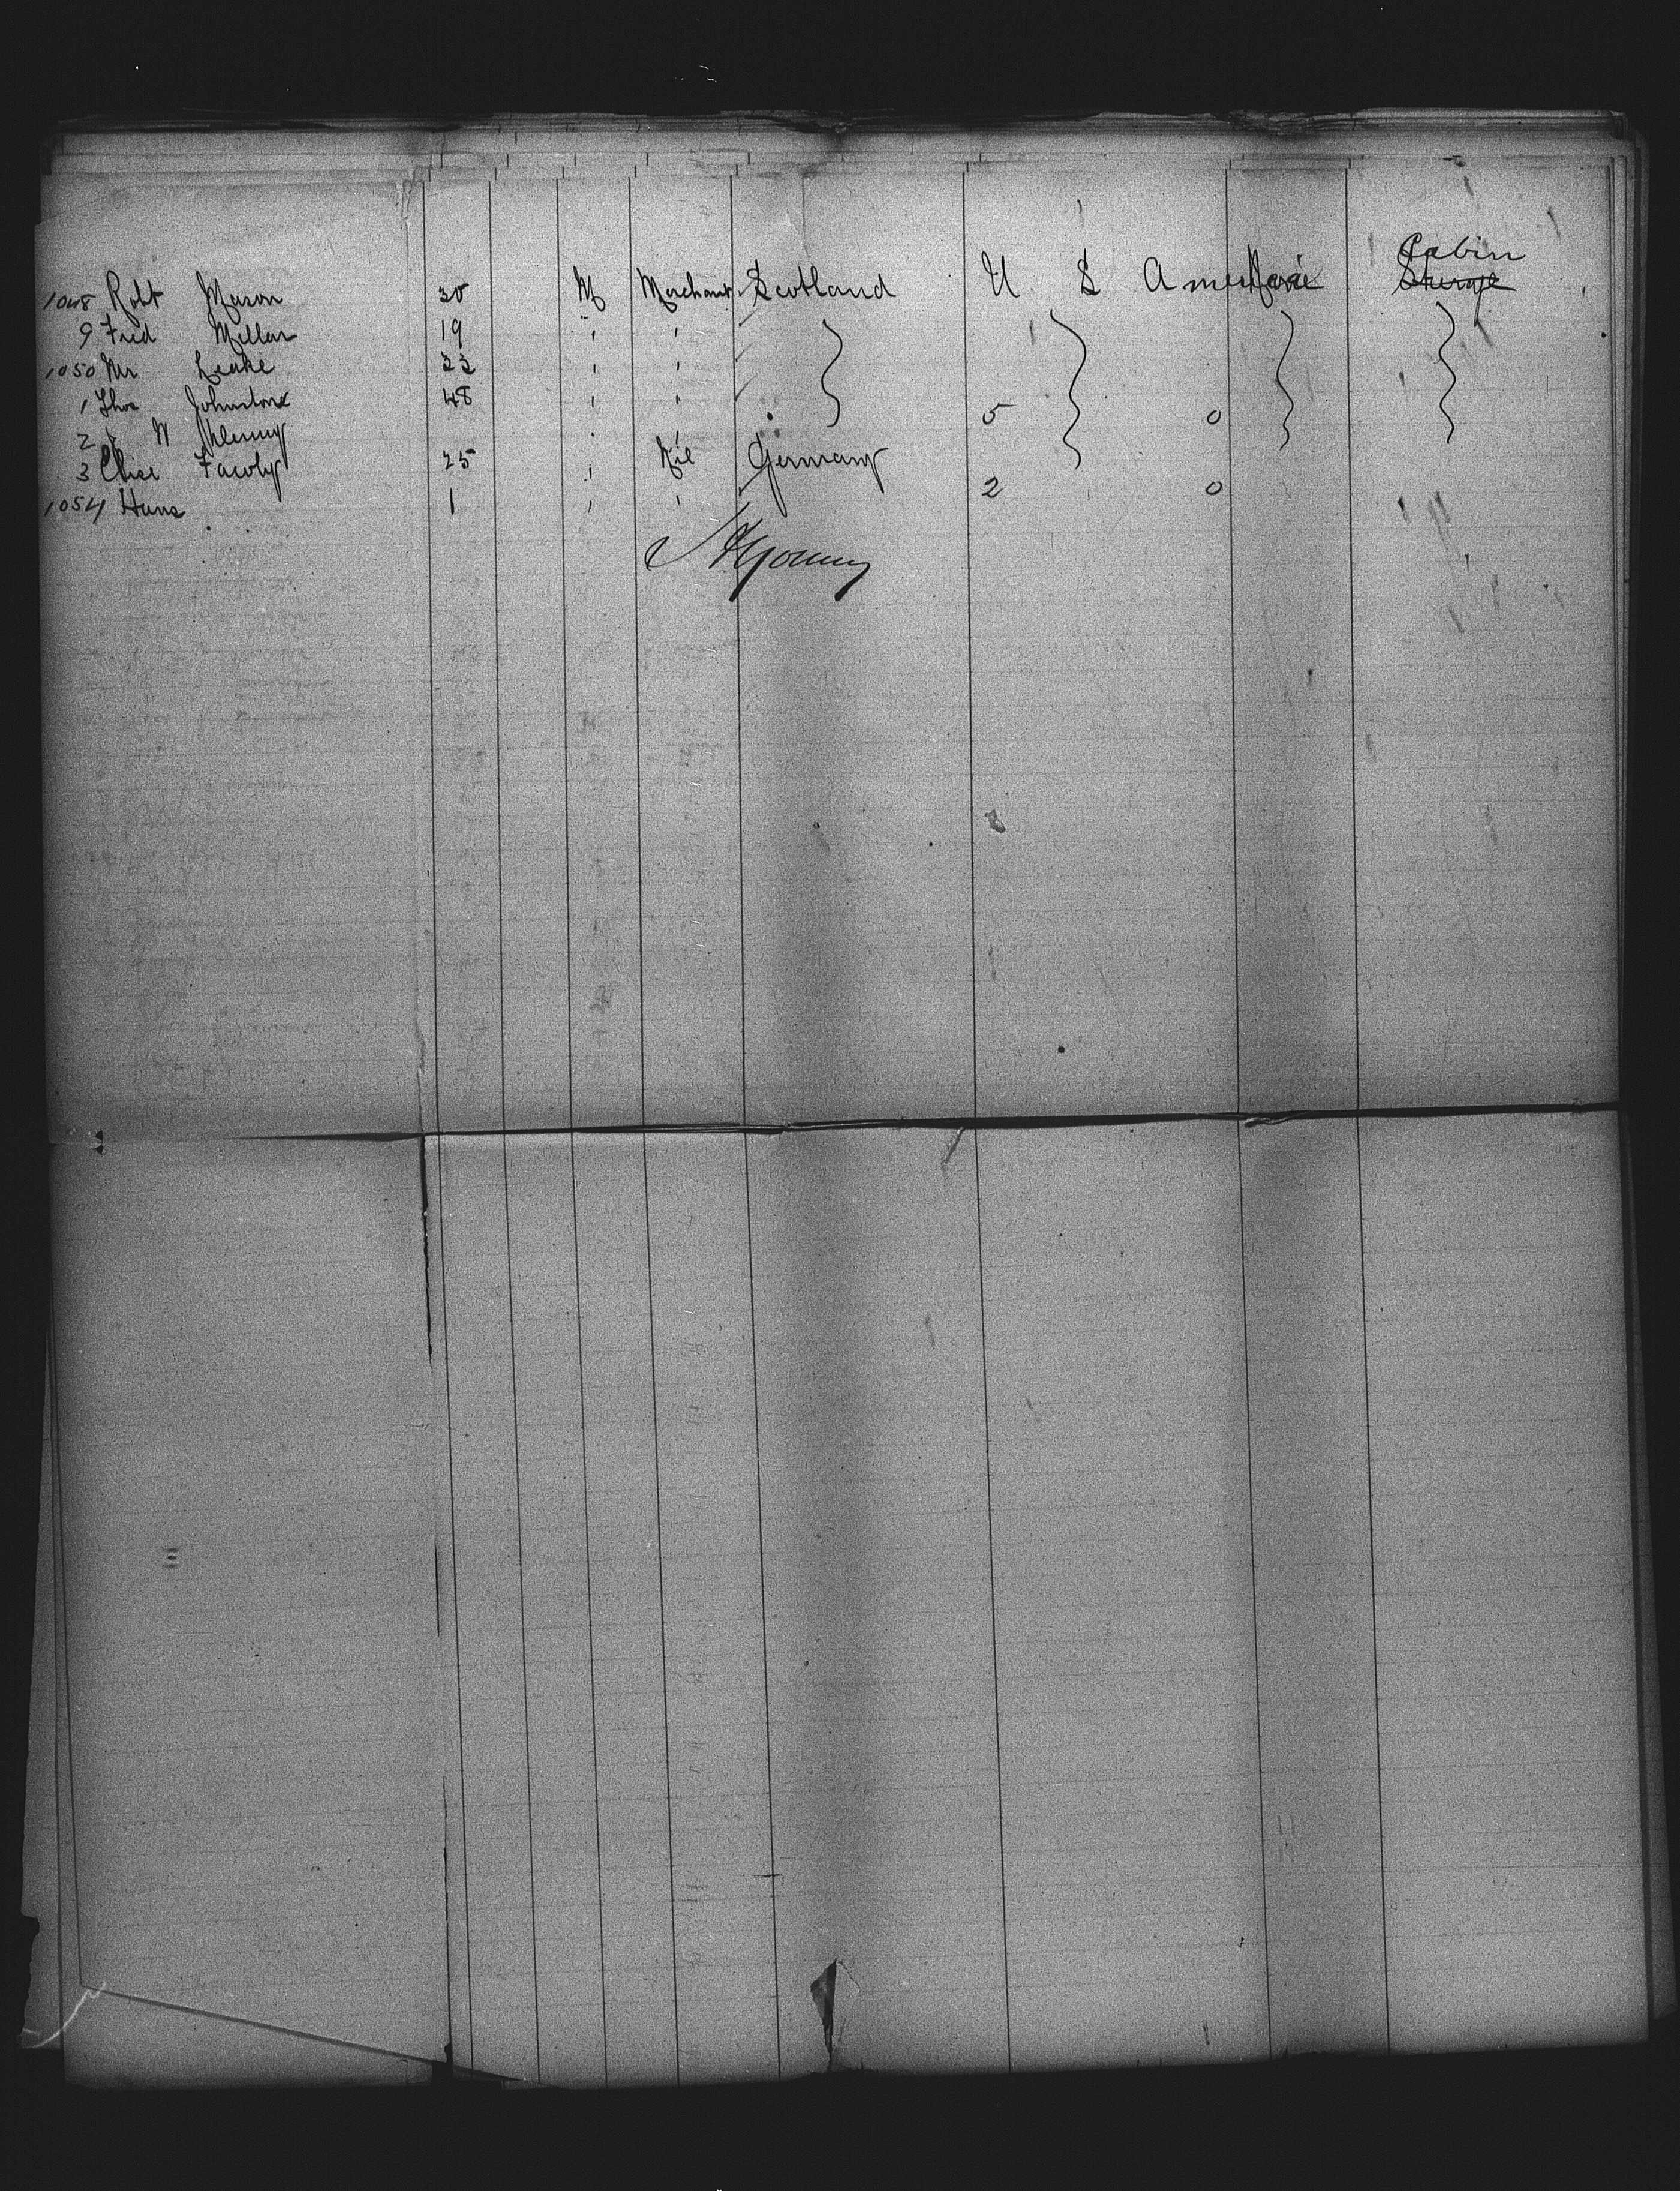 Cabin
1048 Robt Mason 30 M Merchant Scotland U. S America None Steerage
9 Fred Millar 19 " "
1050 Mr Leake 22 " "
1 Thos Johnstone 48 " " 5 0
2 W
3 25 " Nil Germany
1054 Hans 1 " " 2 0